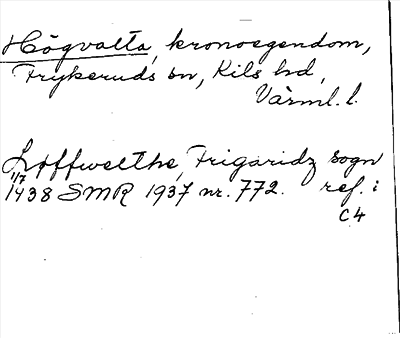 Högvalta, kronoegendom,
Frykeruds sn, Kils hd,
Värml. l.
Løffwelthe, Frigaridz sogn
1/7 1438 SMR 1937 nr. 772. ref. i
C4